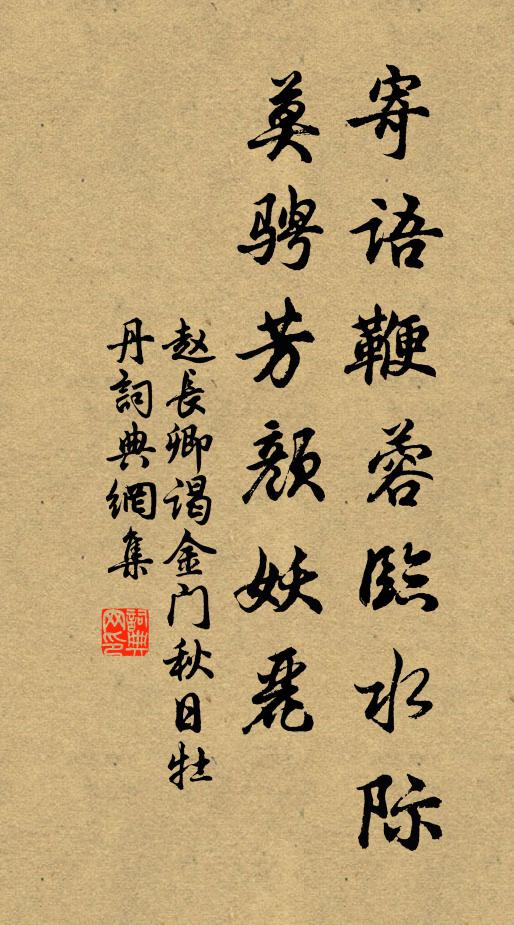 寄语鞭蓉臨水际
莫骋芳颜妖麗
赵長卿谒金门秋日牡
丹詞典網集
詞典网印